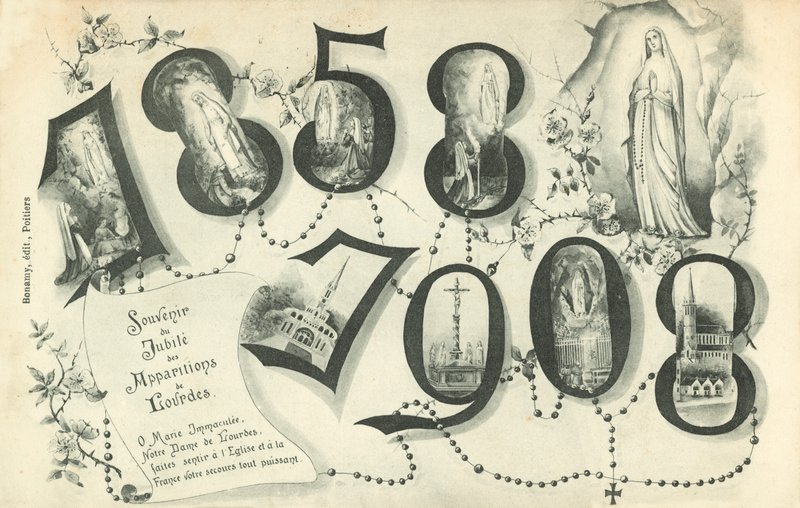 1858
1908
Souvenir
du
Jubilé
des
Apparitions
de
Lourdes.
O Marie Immaculée,
Notre Dame de Lourdes,
faites sentir à l'Eglise et à la
France votre secours tout puissant.
Bonamy, édit., Poitiers